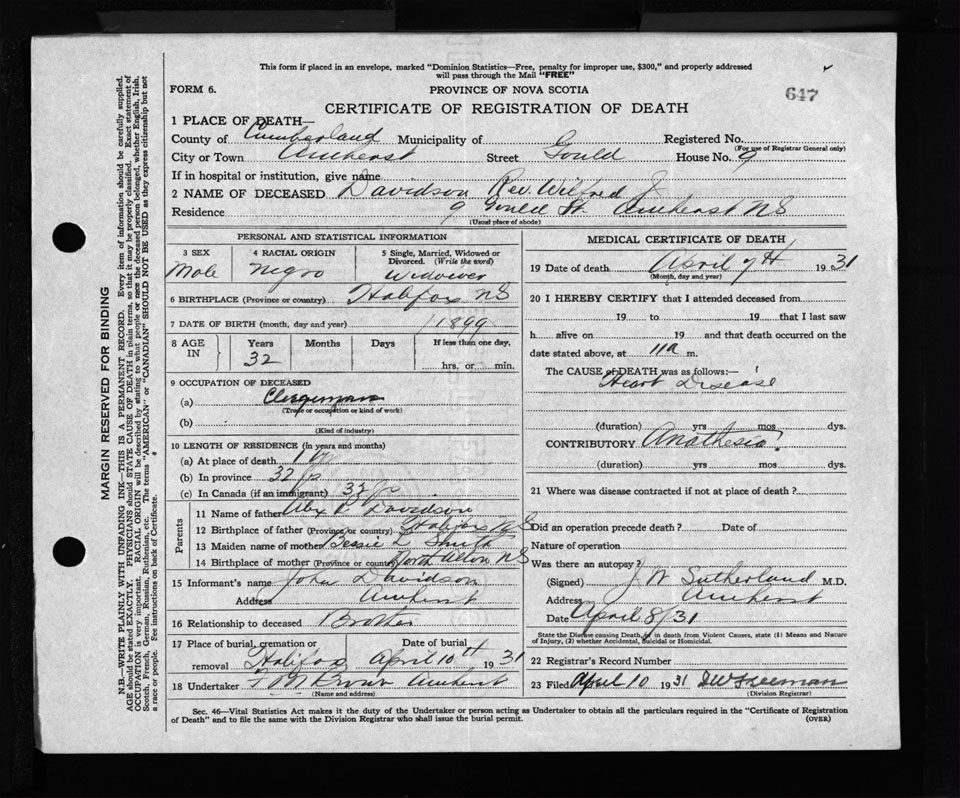 This form if placed in an envelope, marked "Dominion Statistics—Free, penalty for improper use, $300," and properly addressed
will pass through the Mail "FREE"
FORM 6.
PROVINCE OF NOVA SCOTIA
647
CERTIFICATE OF REGISTRATION OF DEATH
1 PLACE OF DEATH—
County of Cumberland Municipality of Registered No.
(For use of Registrar General only)
City or Town Amherst Street Gould House No. 9
If in hospital or institution, give name
2 NAME OF DECEASED Davidson Rev. Wilfred J.
Residence 9 Gould St. Amherst NS
(Usual place of abode)
PERSONAL AND STATISTICAL INFORMATION
3 SEX 4 RACIAL ORIGIN 5 Single, Married, Widowed or
Divorced. (Write the word)
Male Negro Widower
6 BIRTHPLACE (Province or country) Halifax NS
7 DATE OF BIRTH (month, day and year) 1899
8 AGE IN Years Months Days If less than one day,
32 hrs. or min.
9 OCCUPATION OF DECEASED
(a) Clergyman
(Trade or occupation or kind of work)
(b)
(Kind of industry)
10 LENGTH OF RESIDENCE (in years and months)
(a) At place of death 1 yr
(b) In province 32 yrs
(c) In Canada (if an immigrant) 32 yrs
Parents
11 Name of father Alex Davidson
12 Birthplace of father (Province or country) Halifax NS
13 Maiden name of mother Bessie L Smith
14 Birthplace of mother (Province or country) NS
15 Informant's name John Davidson
Address Amherst
16 Relationship to deceased Brother
17 Place of burial, cremation or Date of burial
removal Halifax April 10th 1931
18 Undertaker Brown Amherst
(Name and address)
MEDICAL CERTIFICATE OF DEATH
19 Date of death April 7th 1931
(Month, day and year)
20 I HEREBY CERTIFY that I attended deceased from
19 to 19 that I last saw
h alive on 19 and that death occurred on the
date stated above, at 11a m.
The CAUSE of DEATH was as follows:—
Heart Disease
(duration) yrs mos dys.
CONTRIBUTORY
(duration) yrs mos dys.
21 Where was disease contracted if not at place of death?
Did an operation precede death? Date of
Nature of operation
Was there an autopsy?
(Signed) J W Sutherland M.D.
Address Amherst
Date April 8/31
State the Disease causing Death, or in death from Violent Causes, state (1) Means and Nature
of Injury, (2) whether Accidental, Suicidal or Homicidal.
22 Registrar's Record Number
23 Filed April 10 1931 Freeman
(Division Registrar)
Sec. 46—Vital Statistics Act makes it the duty of the Undertaker or person acting as Undertaker to obtain all the particulars required in the "Certificate of Registration
of Death" and to file the same with the Division Registrar who shall issue the burial permit.
(OVER)
MARGIN RESERVED FOR BINDING
N.B.—WRITE PLAINLY WITH UNFADING INK—THIS IS A PERMANENT RECORD. Every item of information should be carefully supplied.
AGE should be stated EXACTLY. PHYSICIANS should STATE CAUSE OF DEATH in plain terms, so that it may be properly classified. Exact statement of
OCCUPATION is very important. RACIAL ORIGIN will be described by stating to what people or race the deceased person belonged, whether English, Irish,
Scotch, French, German, Russian, Ruthenian, etc. The terms "AMERICAN" or "CANADIAN" SHOULD NOT BE USED as they express citizenship but not
a race or people. See instructions on back of Certificate.